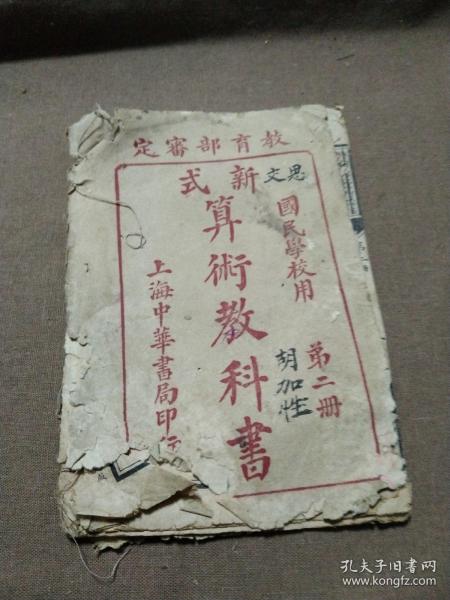 教育部審定
新式
國民學校用
第二冊
算術教科書
上海中華書局印行
思文
胡加性
孔夫子旧书网
www.kongfz.com